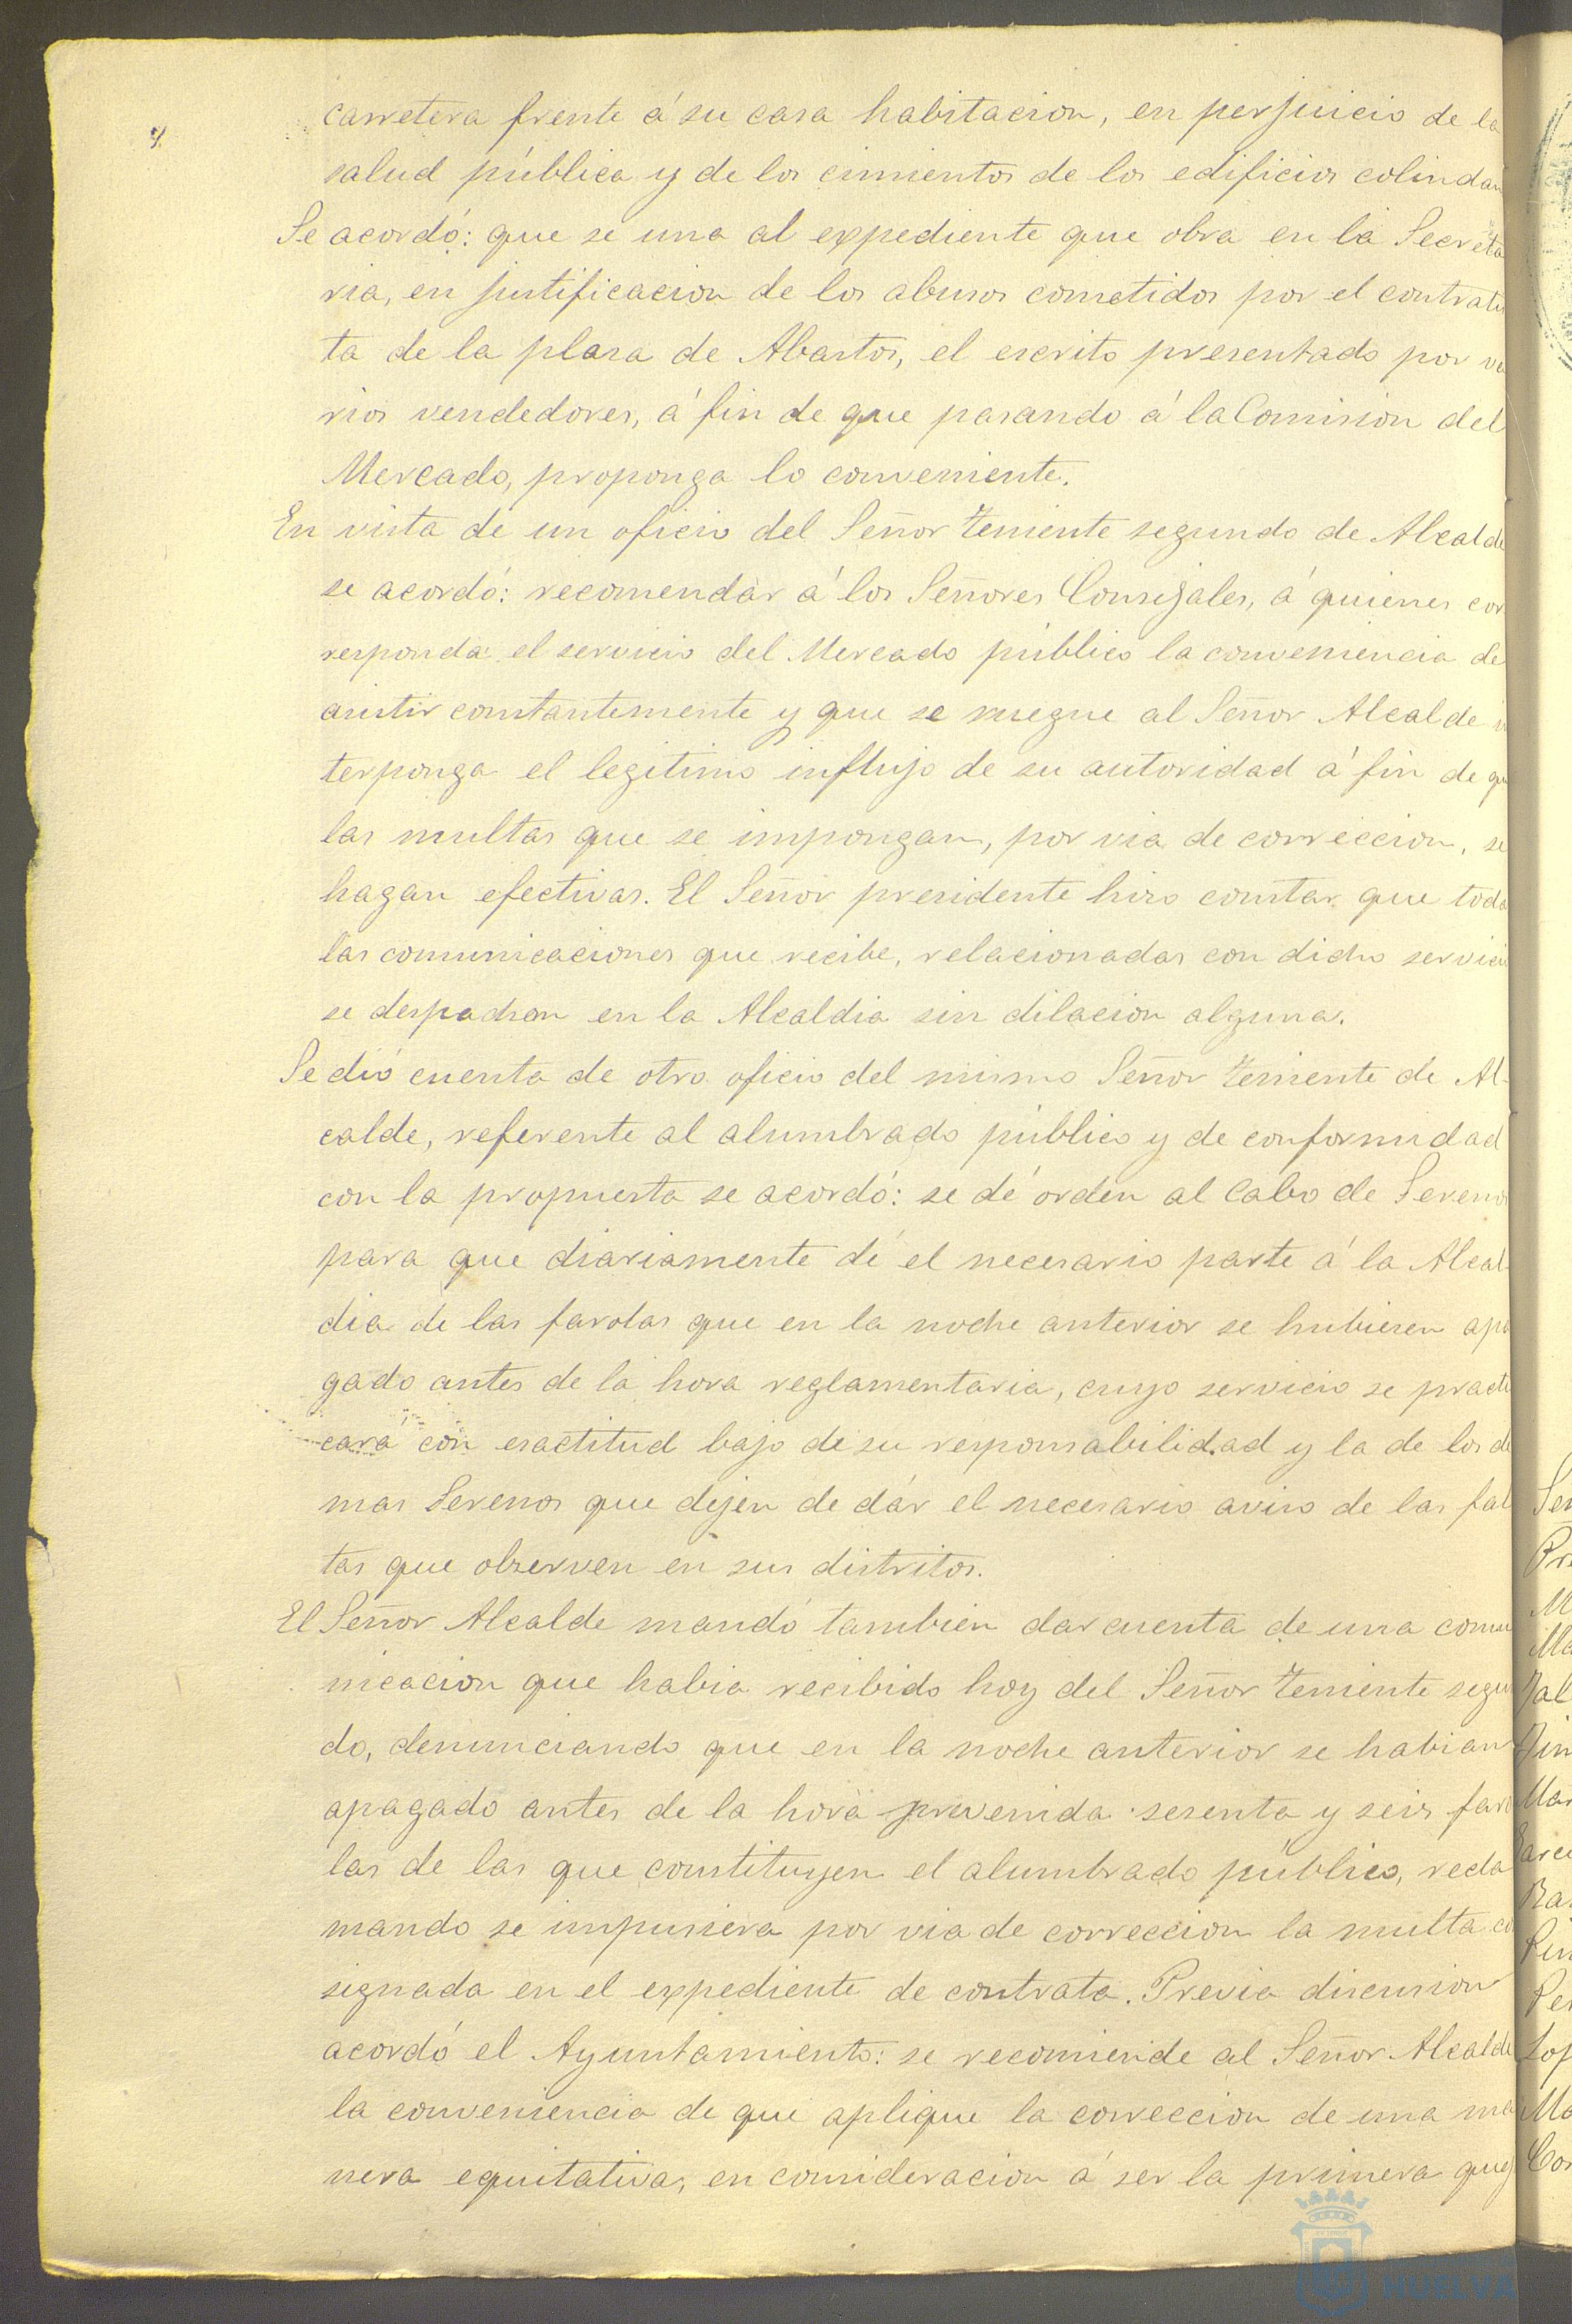 carretera frente á su casa habitacion, en perjuicio de la
salud pública y de los cimientos de los edificios colindan
Se acordó: que se una al expediente que obra en la Secreta
ria, en justificacion de los abusos cometidos por el contratis
ta de la plasa de Abastos, el escrito presentado por va
rios vendedores, á fin de que pasando á la Comision del
Mercado, proponga lo conveniente.
En vista de un oficio del Señor teniente segundo de Alcalde
se acordó: recomendar á los Señores Consejales, á quienes cor
responda el servicio del Mercado público la conveniencia de
asistir constantemente y que se ruegue al Señor Alcalde in
terponga el legitimo influjo de su autoridad á fin de que
las multas que se impongan, por via de correccion, se
hagan efectivas. El Señor presidente hiso constar que todas
las comunicaciones que recibe, relacionadas con dicho servicio
se despachan en la Alcaldia sin dilacion alguna.
Se dió cuenta de otro oficio del mismo Señor teniente de Al-
calde, referente al alumbrado público y de conformidad
con la propuesta se acordó: se dé orden al Cabo de Serenos
para que diariamente dé el necesario parte á la Alcal-
dia de las farolas que en la noche anterior se hubiesen apa
gado antes de la hora reglamentaria, cuyo servicio se practi
cará con esactitud bajo de su responsabilidad y la de los de
mas Serenos que dejen de dár el necesario aviso de las fal
tas que observen en sus distritos.
El Señor Alcalde mandó tambien dar cuenta de una comu
nicacion que habia recibido hoy del Señor teniente segun
do, denunciando que en la noche anterior se habian
apagado antes de la hora prevenida sesenta y seis faro
las de las que constituyen el alumbrado público, recla
mando se impusiera por via de correccion la multa con
signada en el expediente de contrata. Previa discusion
acordó el Ayuntamiento: se recomiende al Señor Alcalde
la conveniencia de que aplique la correccion de una ma
nera equitativa, en consideracion á ser la primera que
HUELVA